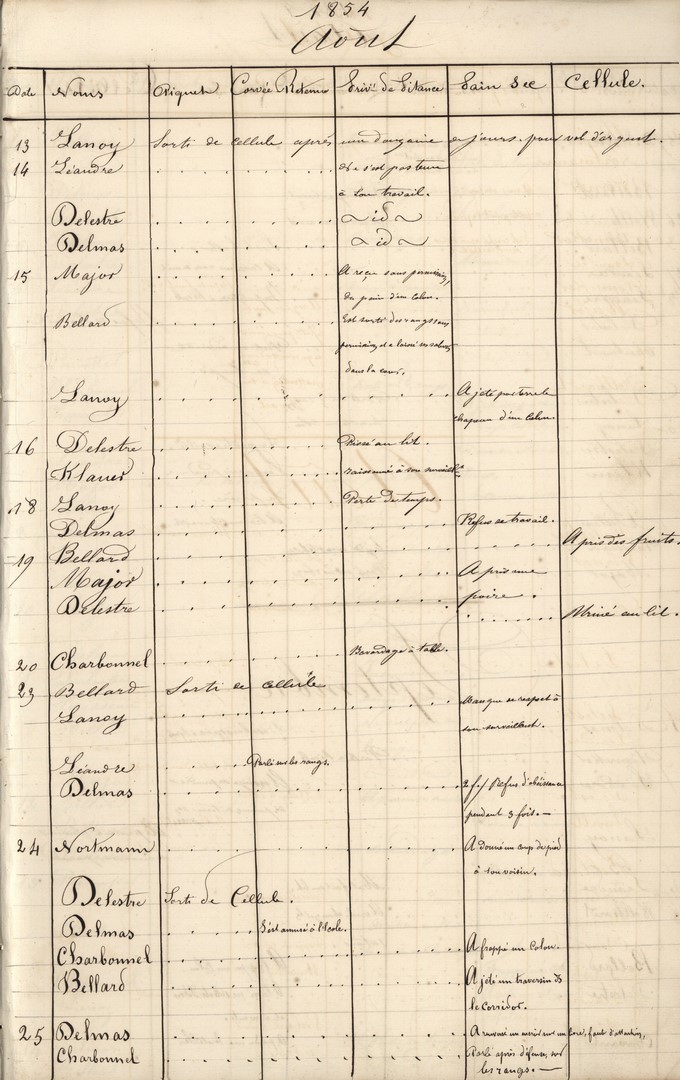 1854
Août
Date Noms Piquet Corvée Retenue Privé de Pitance Pain Sec Cellule.
13 Lanoy Sorti de cellule après une dougaine de jours. pour vol d'argent.
14 Léandre Ne s'est pas tenu
à son travail.
Delestre id
Delmas id
15 Major A reçu sans permission,
du pain d'un Colon.
Bellard Est sorti des rangs sans
permission, et a laissé ses sabots
dans la cour.
Lanoy A jeté par terre le
chapeau d'un Colon.
16 Delestre Pissé au lit.
Klauer raisonné à son surveillt
18 Lanoy Perte de temps.
Delmas Refus de travail.
19 Bellard A pris des fruits.
Major A pris une
poire.
Delestre Uriné au lit.
20 Charbonnel Bavardage à table.
23 Bellard Sorti de cellule
Lanoy Manque de respect à
son surveillant.
Léandre Parlé sur les rangs.
Delmas 2 f./ Refus d'obéissance
pendant 3 fois.—
24 Nortmann A donné un coup de pied
à son voisin.
Delestre Sorti de Cellule.
Delmas S'est amusé à l'école.
Charbonnel A frappé un Colon.
Bellard A jeté un traversin ds
le corridor.
25 Delmas A renversé un faut d'attention,
Charbonnel Parlé après défense, sur
les rangs.—